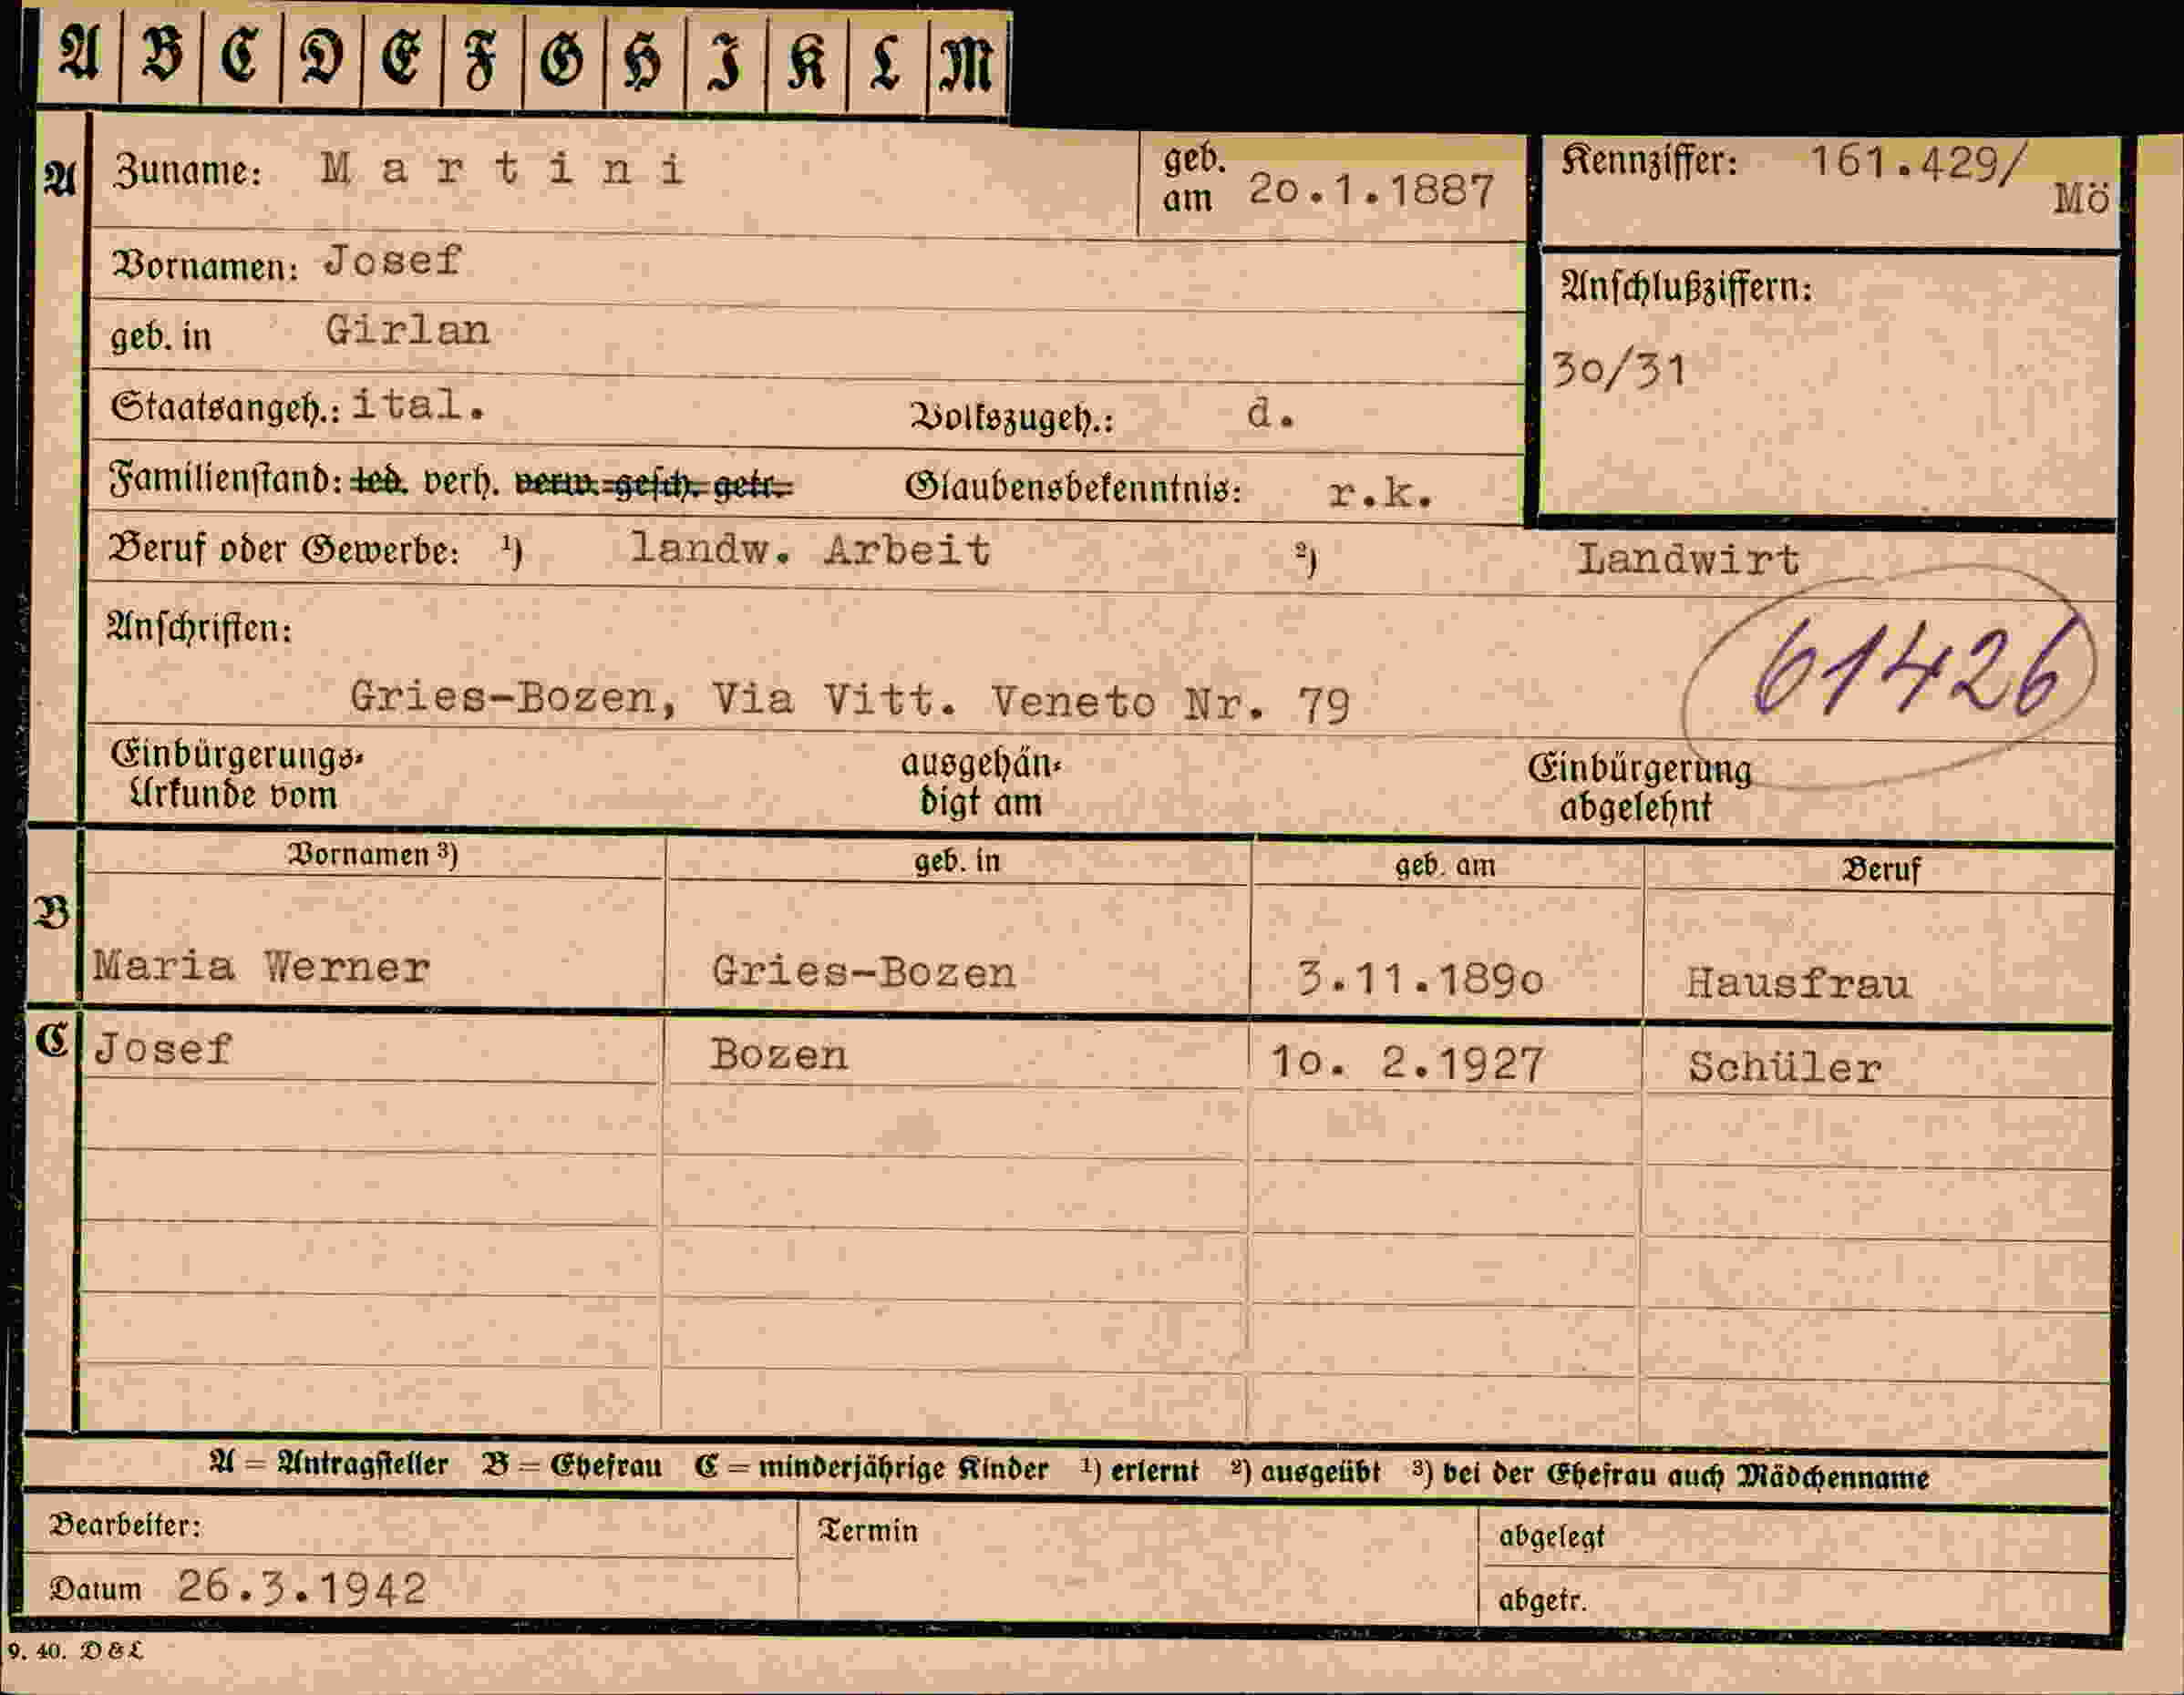 A B C D E F G H I K L M
A Zuname: Martini geb. am 20.1.1887 Kennziffer: 161.429/ Mö
Vornamen: Josef
Anschlußziffern:
geb. in Girlan
30/31
Staatsangeh.: ital. Volkszugeh.: d.
Familienstand: led. verh. verw. gesch. getr. Glaubensbekenntnis: r.k.
Beruf oder Gewerbe: ¹) landw. Arbeit ²) Landwirt
Anschriften:
61426
Gries-Bozen, Via Vitt. Veneto Nr. 79
Einbürgerungs- ausgehän- Einbürgerung
Urkunde vom digt am abgelehnt
Vornamen ³) geb. in geb. am Beruf
B
Maria Werner Gries-Bozen 3.11.1890 Hausfrau
C Josef Bozen 10. 2.1927 Schüler
A = Antragsteller B = Ehefrau C = minderjährige Kinder ¹) erlernt ²) ausgeübt ³) bei der Ehefrau auch Mädchenname
Bearbeiter: Termin abgelegt
Datum 26.3.1942 abgetr.
9. 40. D & L